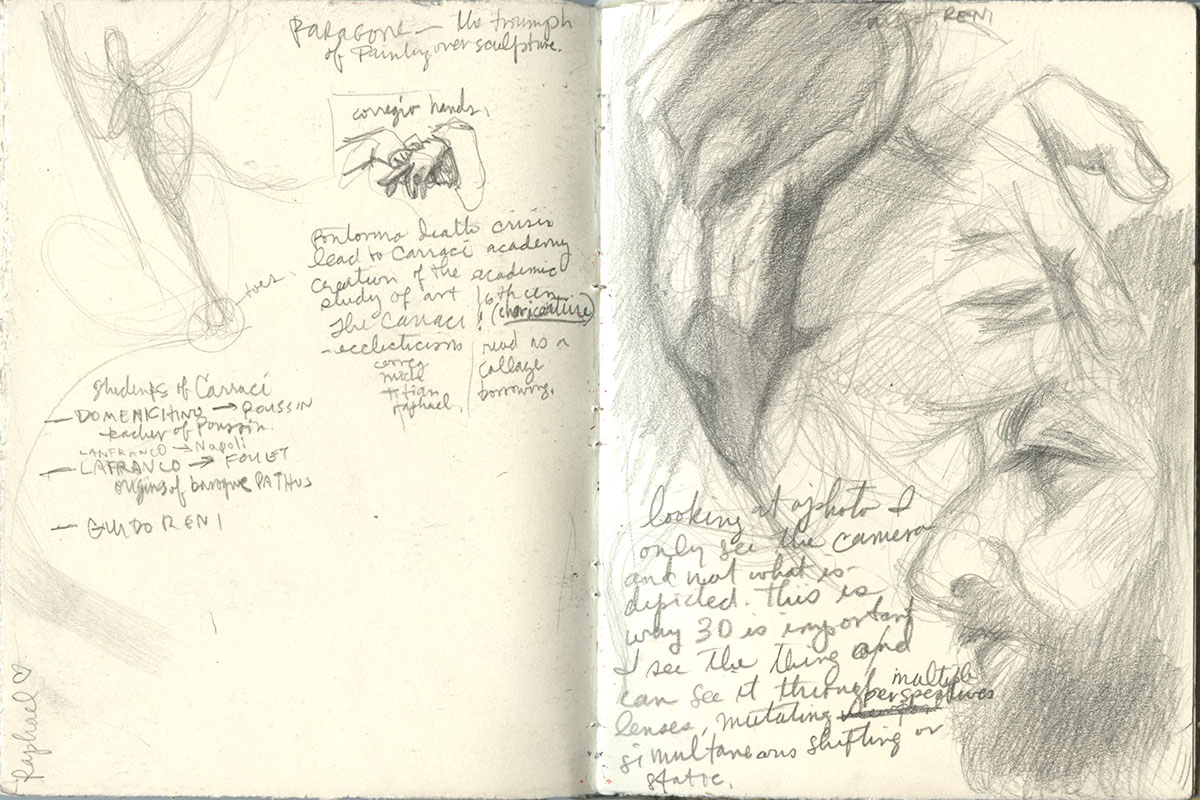 PARAGONE — the triumph
of Painting over sculpture.
corregio hands.
pontormo death crisis
lead to Carraci academy
creation of the academic
study of art 16th cen
The Carraci! (charicature)
- eclecticism
correg
mich
titian
raphael.
read as a
collage
borrowing.
toes
students of Carraci
— DOMENICHINO → POUSSIN
teacher of Poussin.
LANFRANCO → Napoli
— LAFRANCO →
origins of baroque PATHOS
— GUIDO RENI
Raphael ♡
RENI
looking at a photo I
only see the camera
and not what is
depicted. This is
way 3D is important
I see the thing and
can see it through multiple
lenses, mutating perspectives
simultaneous shifting or
static.